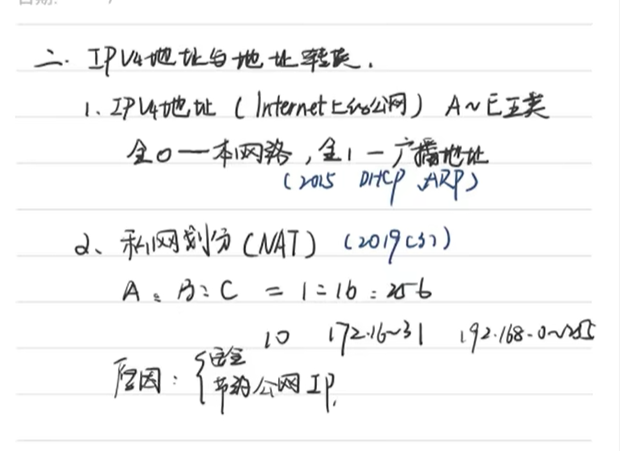 日期:
二. IPV4地址与地址转换.
1、IPV4地址 (Internet上的公网) A~E五类
全0一本网络,全1一广播地址
(2015 DHCP ARP)
2、私网划分(NAT) (2019(3))
A:B:C = 1:16:256
10 172.16~31 192.168.0~255
原因:{安全
节约公网IP.